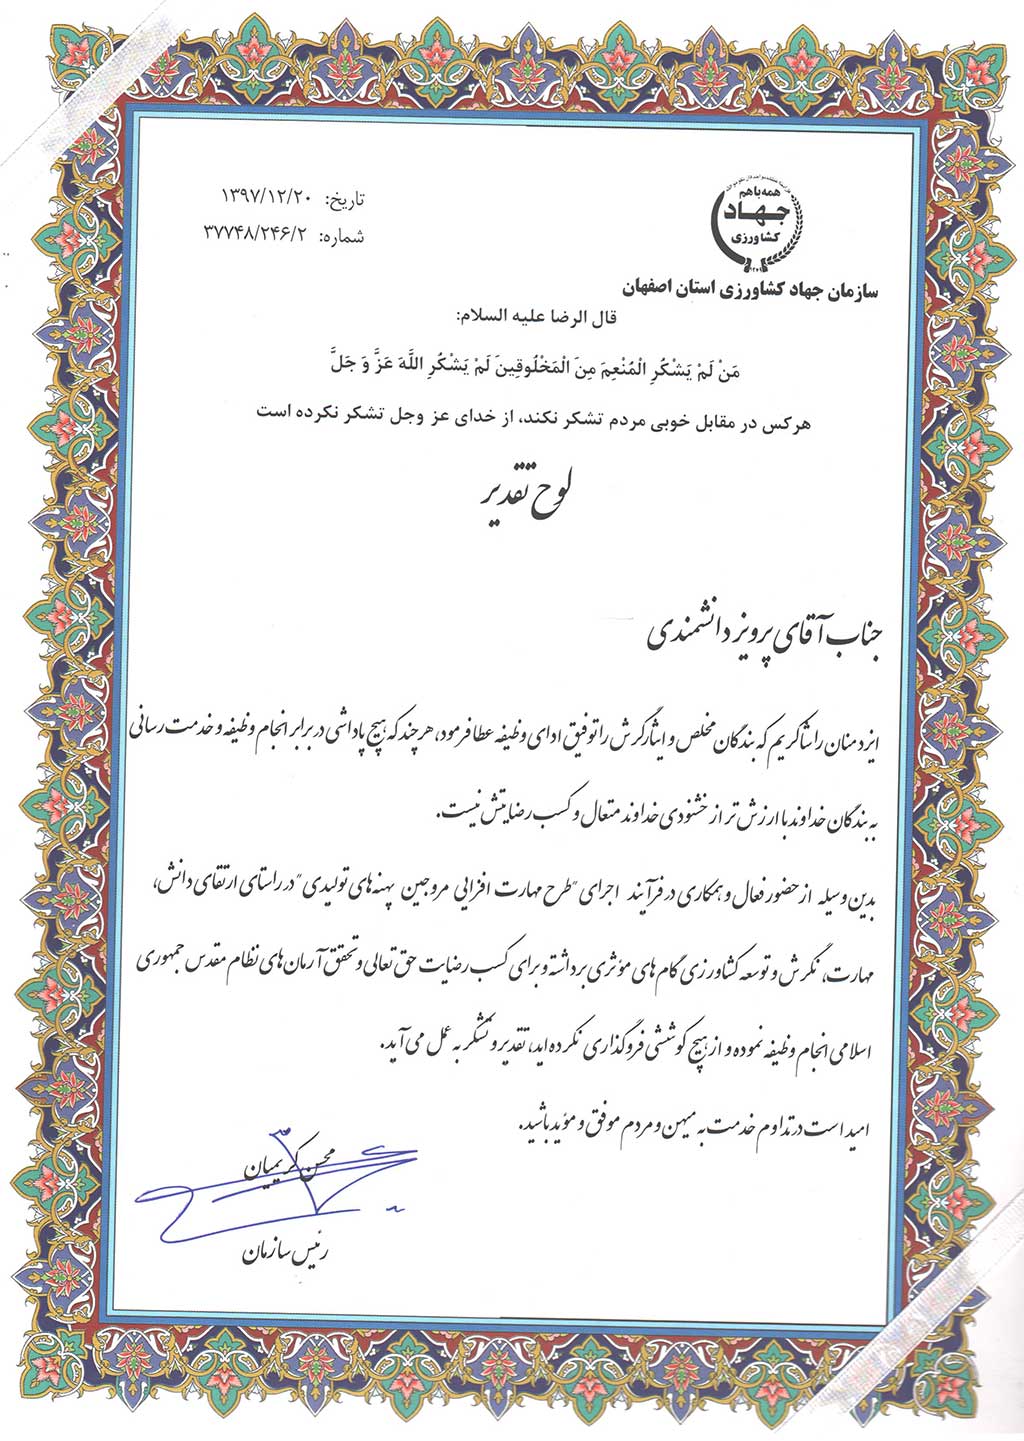 همه با هم
جهاد
کشاورزی
تاریخ: ۱۳۹۷/۱۲/۲۰
شماره: ۳۷۷۴۸/۲۴۶/۲
سازمان جهاد کشاورزی استان اصفهان
قال الرضا علیه السلام:
مَنْ لَمْ یَشْکُرِ الْمُنْعِمَ مِنَ الْمَخْلُوقِینَ لَمْ یَشْکُرِ اللَّهَ عَزَّ وَ جَلَّ
هرکس در مقابل خوبی مردم تشکر نکند، از خدای عز وجل تشکر نکرده است
لوح تقدیر
جناب آقای پرویز دانشمندی
ایزد منان را شاکریم که بندگان مخلص و ایثارگرش را توفیق ادای وظیفه عطا فرمود، هر چند که هیچ پاداشی در برابر انجام وظیفه و خدمت رسانی
به بندگان خداوند با ارزش تر از خشنودی خداوند متعال و کسب رضایتش نیست.
بدین وسیله از حضور فعال و همکاری در فرآیند اجرای "طرح مهارت افزایی مروجین پهنه های تولیدی" در راستای ارتقای دانش،
مهارت، نگرش و توسعه کشاورزی گام های مؤثری برداشته و برای کسب رضایت حق تعالی و تحقق آرمان های نظام مقدس جمهوری
اسلامی انجام وظیفه نموده و از هیچ کوششی فروگذاری نکرده اید، تقدیر و تشکر به عمل می آید.
امید است در تداوم خدمت به میهن و مردم موفق و مؤید باشید.
محسن کریمیان
رئیس سازمان